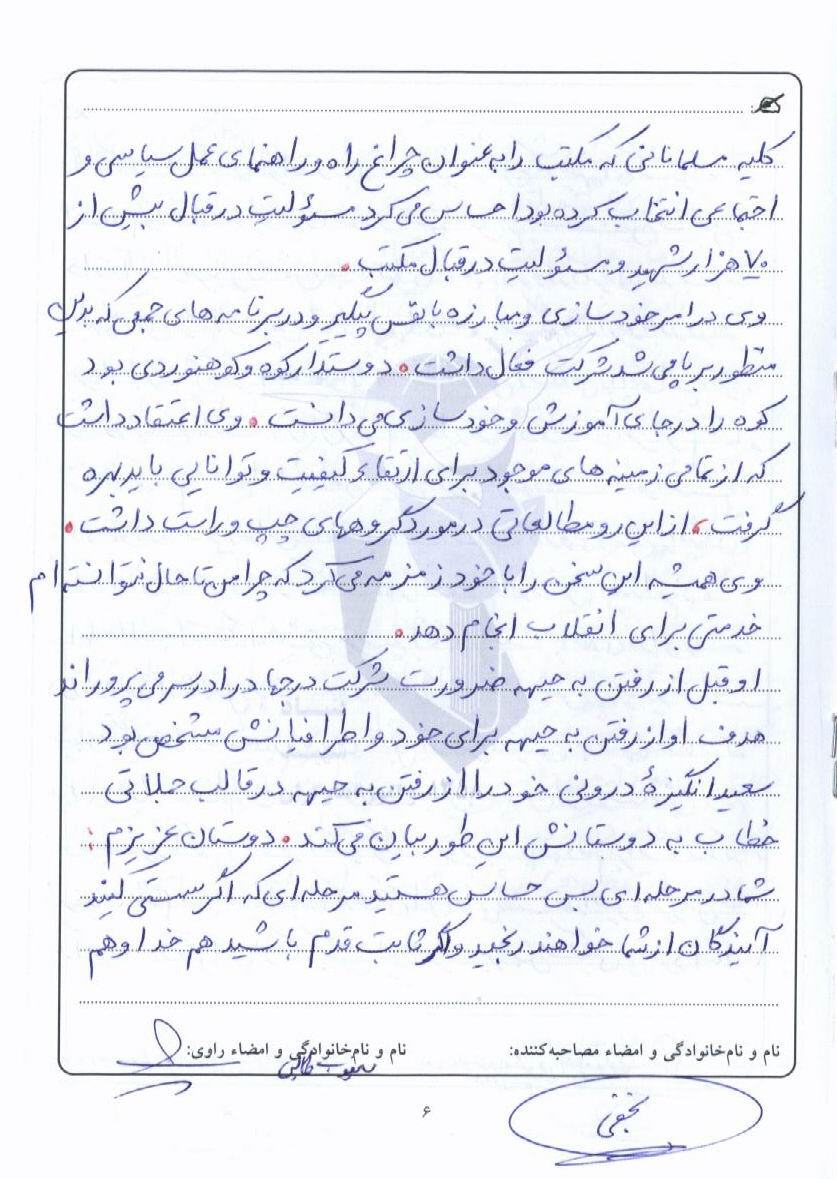 کلیه مسلمانانی که مکتب را به عنوان چراغ راه و راهنمای عمل سیاسی و
اجتماعی انتخاب کرده بود احساس می کرد مسئولیت در قبال بیش از
۷۰ هزار شهید و مسئولیت در قبال مکتب.
وی در امر خودسازی و مبارزه با نفس پیگیر و در برنامه های جمعی که بدین
منظور برپا می شد شرکت فعال داشت. دوستدار کوه و کوهنوردی بود
کوه را در جای آموزش و خودسازی می دانست. وی اعتقاد داشت
که از تمامی زمینه های موجود برای ارتقاء کیفیت و توانایی باید بهره
گرفت، از این رو مطالعاتی در مورد گروههای چپ و راست داشت.
وی همیشه این سخن را با خود زمزمه می کرد که چرا من تا حال نتوانسته ام
خدمتی برای انقلاب انجام دهد.
او قبل از رفتن به جبهه ضرورت شرکت در جهاد را در سر می پروراند
هدف او از رفتن به جبهه برای خود و اطرافیانش مشخص بود
سعید انگیزهٔ درونی خود را از رفتن به جبهه در قالب جملاتی
خطاب به دوستانش این طور بیان می کند. دوستان عزیزم:
شما در مرحله ای بس حساس هستید مرحله ای که اگر سستی کنید
آیندگان از شما خواهند رنجید و اگر ثابت قدم باشید هم خدا و هم
نام و نام‌خانوادگی و امضاء مصاحبه‌کننده: نام و نام‌خانوادگی و امضاء راوی:
نجفی
۶